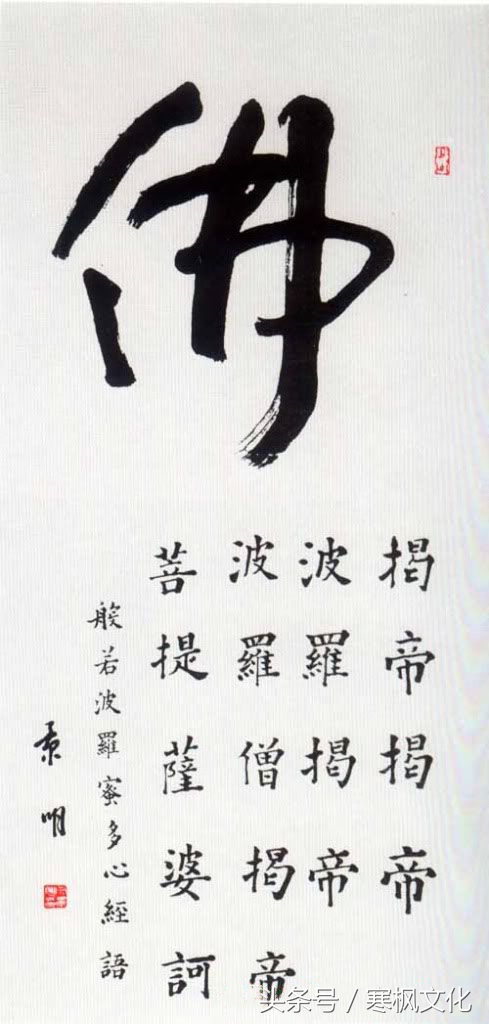 佛
揭帝揭帝
波羅揭帝
波羅僧揭帝
菩提薩婆訶
般若波羅蜜多心經語
明
头条号／寒枫文化